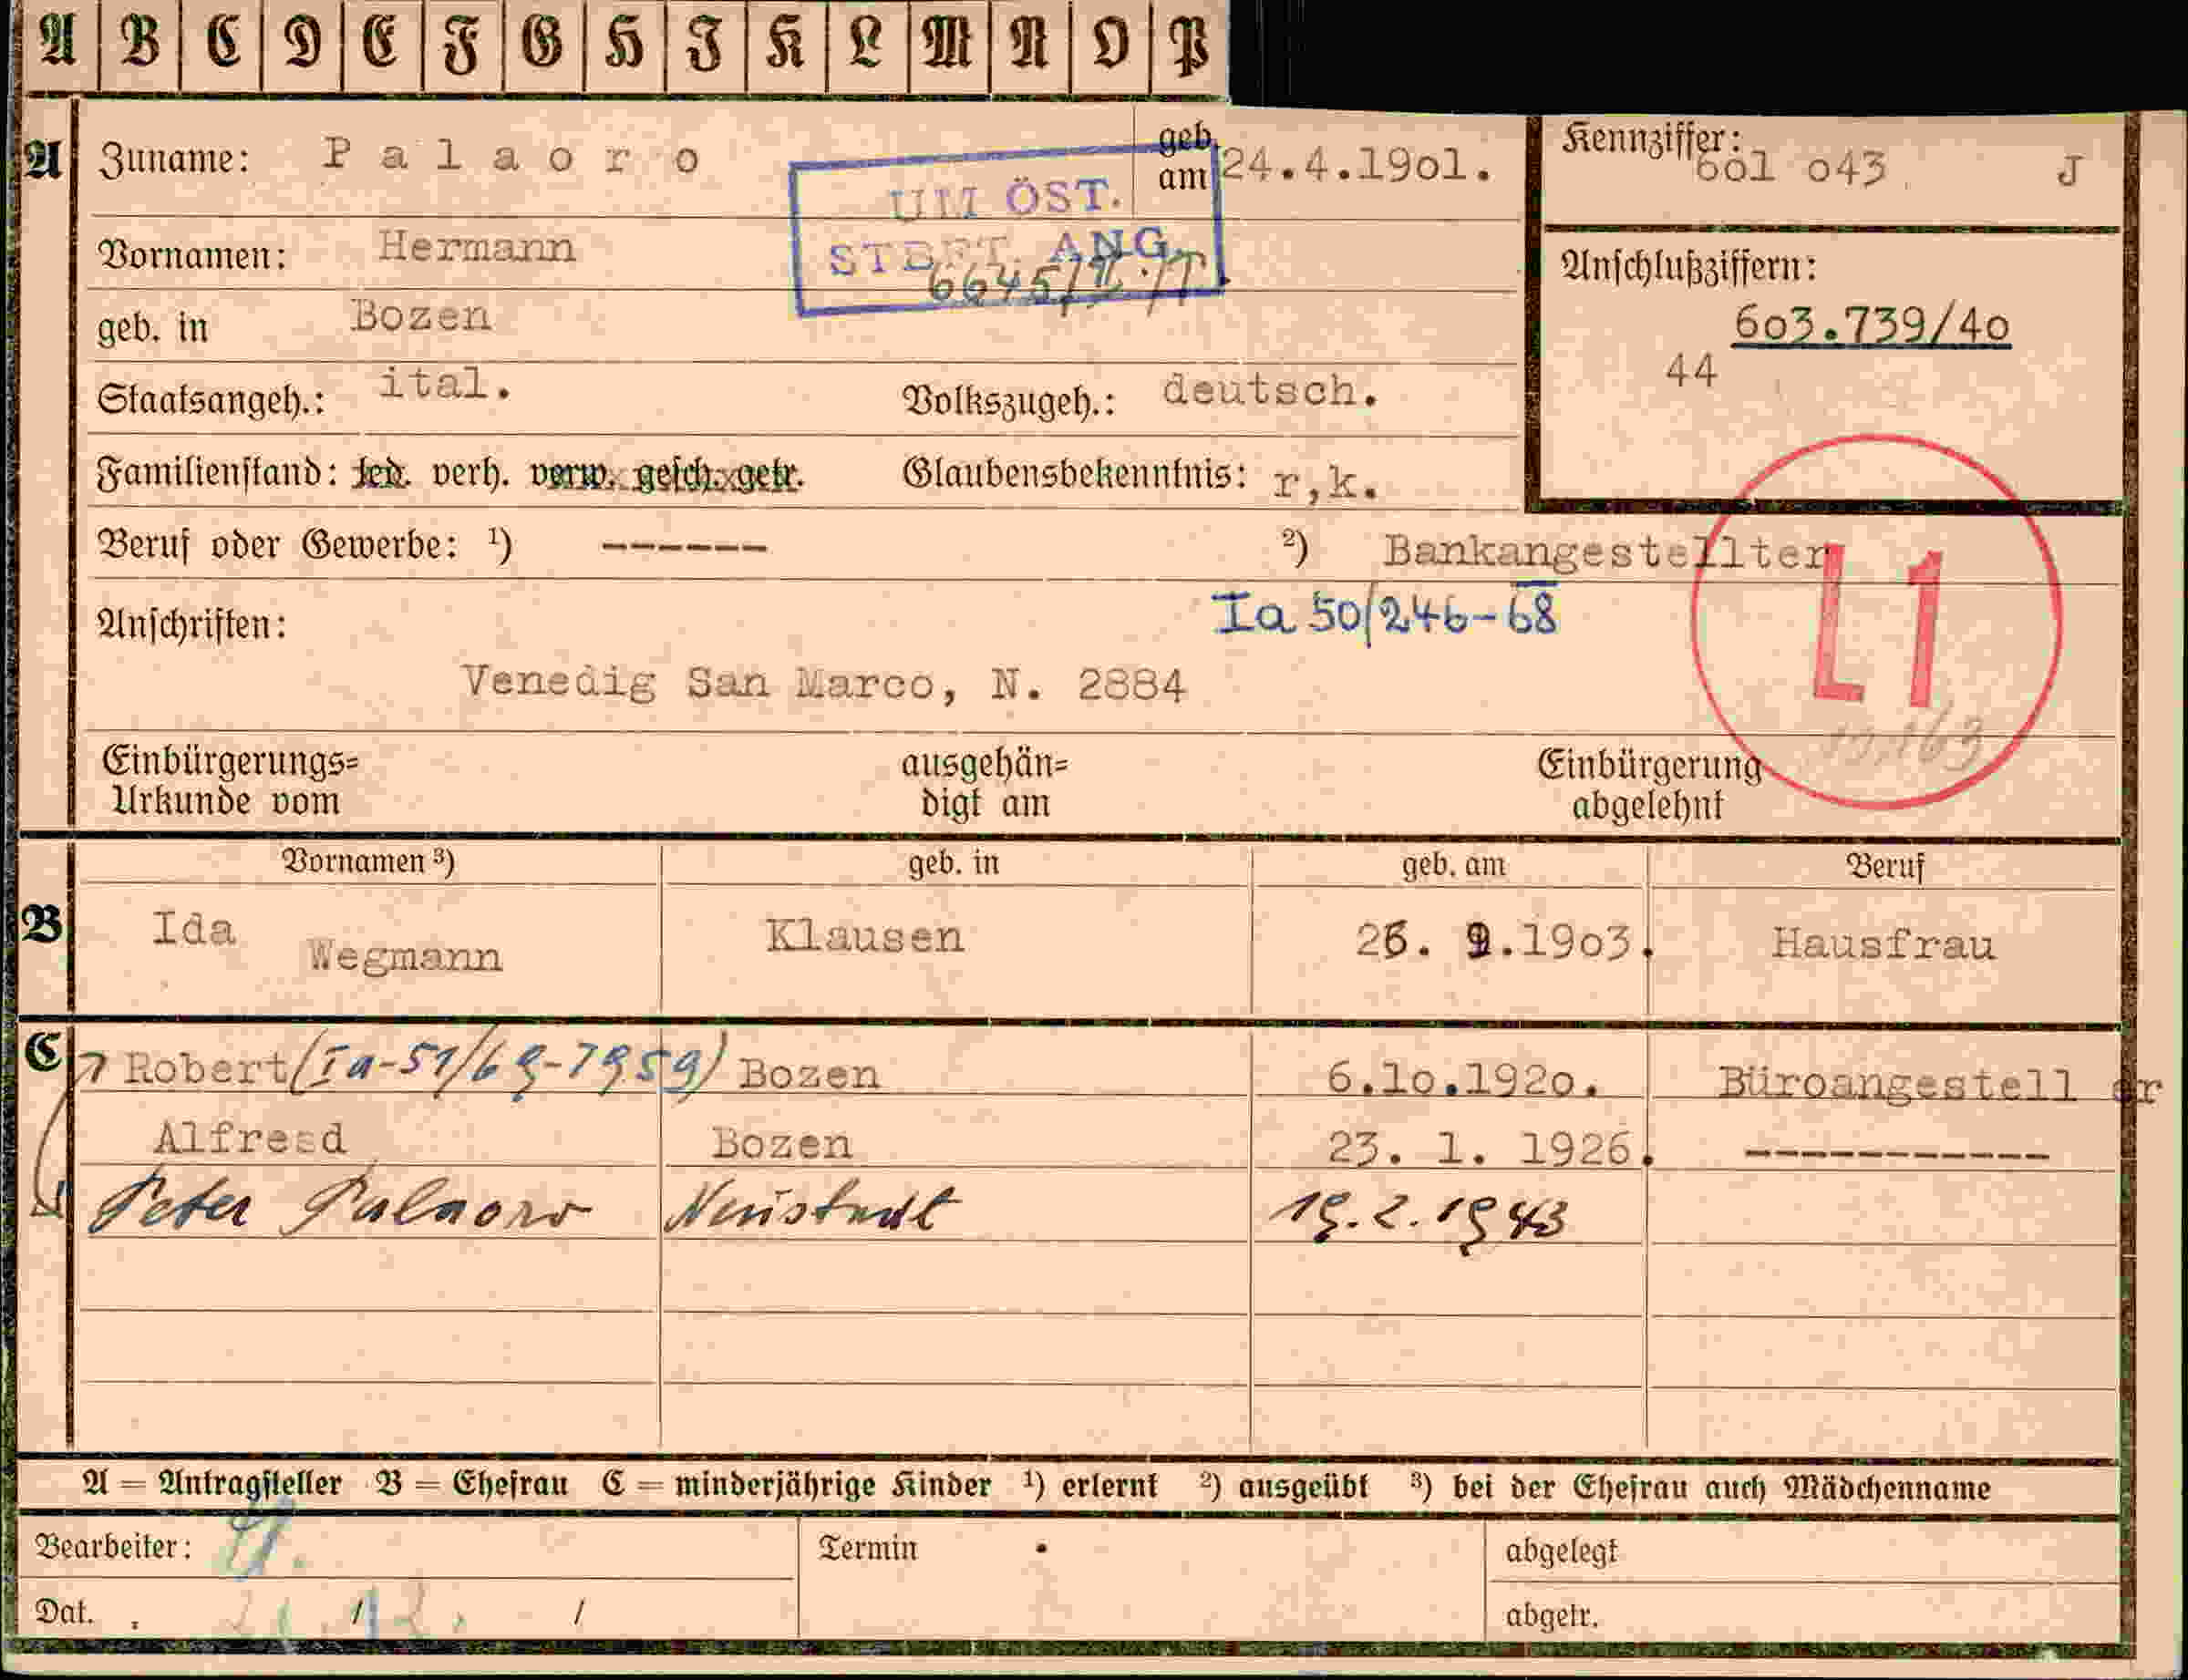 A B C D E F G H J K L M N O P
A Zuname: Palaoro geb. am 24.4.19o1.
Kennziffer: 6o1 o43 J
UM ÖST.
STBFT. ANG.
6645/II./T.
Vornamen: Hermann
Anschlußziffern:
6o3.739/4o
44
geb. in Bozen
Staatsangeh.: ital. Volkszugeh.: deutsch.
Familienstand: led. verh. verw. gesch. getr. Glaubensbekenntnis: r,k.
Beruf oder Gewerbe: ¹) ------ ²) Bankangestellter
L1
Anschriften: Ia 50/246-68
Venedig San Marco, N. 2884
Einbürgerungs=
Urkunde vom
ausgehän=
digt am
Einbürgerung
abgelehnt
Vornamen ³) geb. in geb. am Beruf
B Ida Wegmann Klausen 26. 9.19o3. Hausfrau
C Robert (Ia-51/69-1959) Bozen 6.1o.192o. Büroangestell er
Alfreed Bozen 23. 1. 1926. -----------
Peter Palaoro Neustadt 19.2.1943
A = Antragsteller B = Ehefrau C = minderjährige Kinder ¹) erlernt ²) ausgeübt ³) bei der Ehefrau auch Mädchenname
Bearbeiter: Termin abgelegt
Dat. / / abgetr.